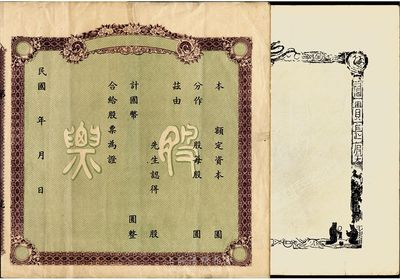 本 額定資本 圓
分作 股每股 圓
茲由
先生認得 股
計國幣 圓整
合給股票為證
民國 年 月 日
股票